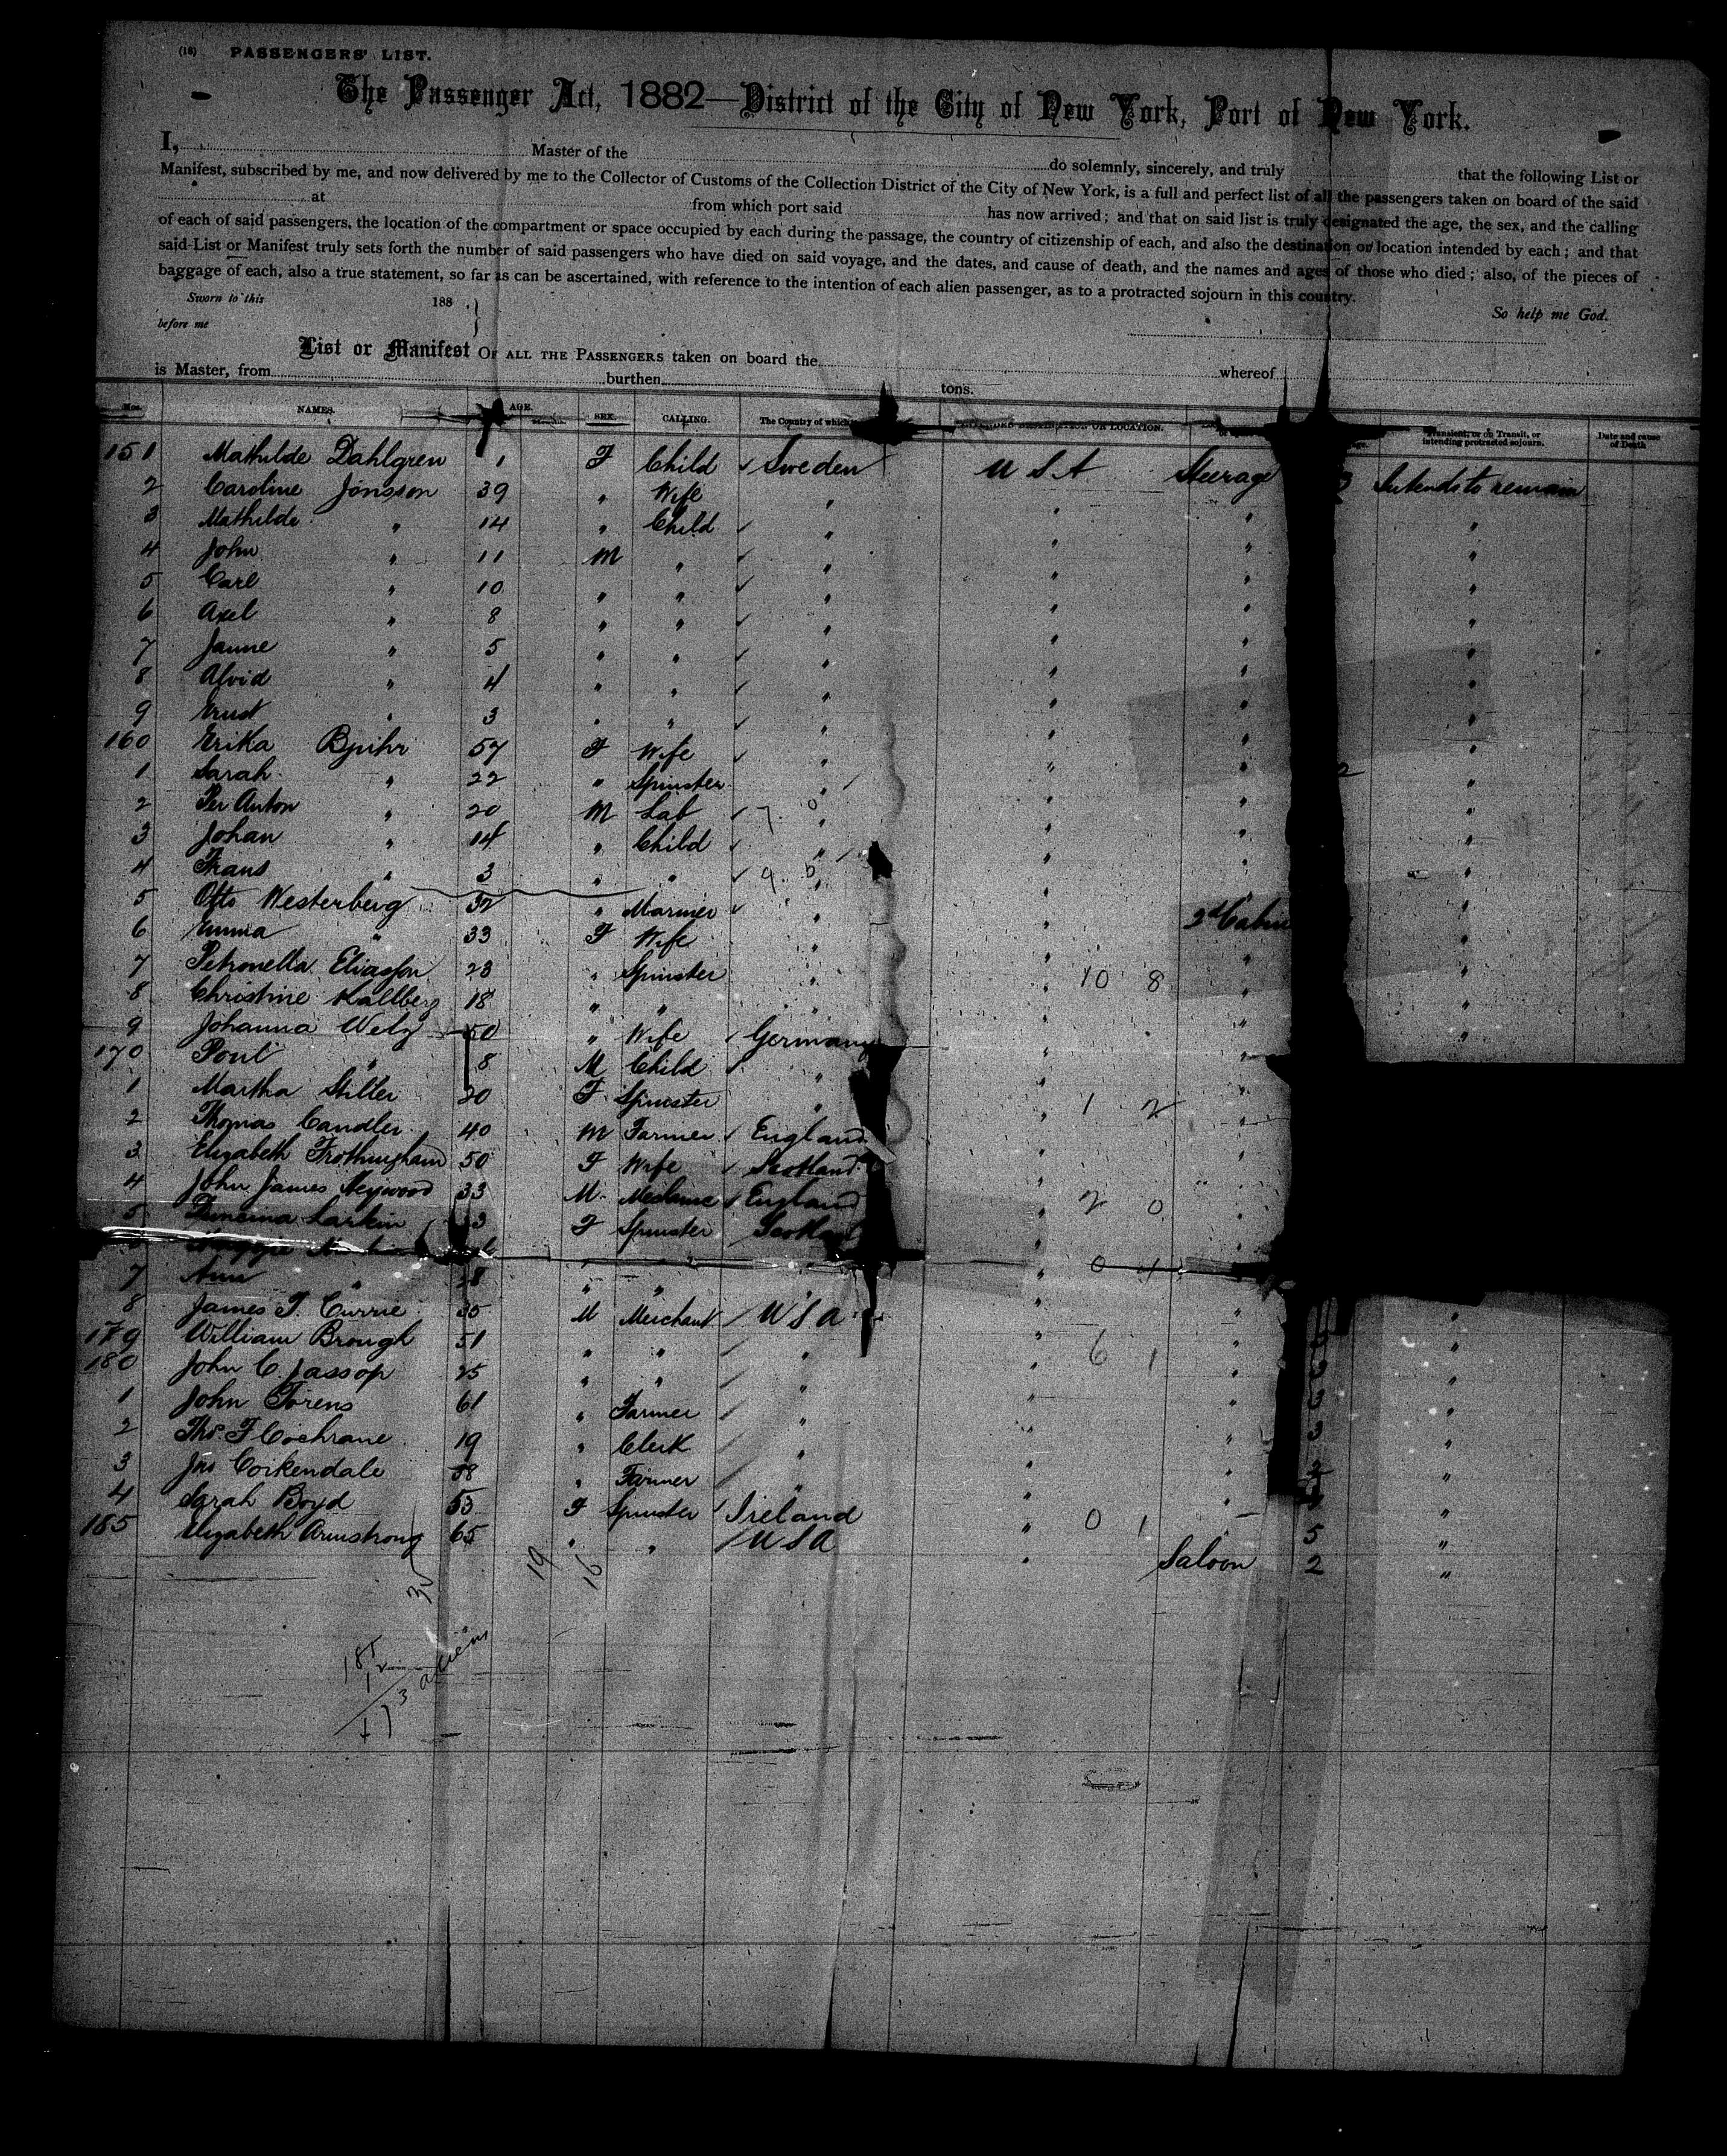 (18) PASSENGERS' LIST.
The Passenger Act, 1882—District of the City of New York, Port of New York.
I, Master of the do solemnly, sincerely, and truly that the following List or
Manifest, subscribed by me, and now delivered by me to the Collector of Customs of the Collection District of the City of New York, is a full and perfect list of all the passengers taken on board of the said
at from which port said has now arrived; and that on said list is truly designated the age, the sex, and the calling
of each of said passengers, the location of the compartment or space occupied by each during the passage, the country of citizenship of each, and also the destination or location intended by each; and that
said List or Manifest truly sets forth the number of said passengers who have died on said voyage, and the dates, and cause of death, and the names and ages of those who died; also, of the pieces of
baggage of each, also a true statement, so far as can be ascertained, with reference to the intention of each alien passenger, as to a protracted sojourn in this country.
Sworn to this 188 So help me God.
before me
List or Manifest OF ALL THE PASSENGERS taken on board the whereof
is Master, from burthen tons.
Nos. NAMES. AGE. SEX. CALLING. The Country of which INTENDED DESTINATION OR LOCATION. Transient, or in Transit, or intending protracted sojourn. Date and cause of Death
151 Mathilde Dahlgren 1 F Child ✓ Sweden U S A Steerage 3 Intends to remain
2 Caroline Jonsson 39 " Wife " " " "
3 Mathilde " 14 " Child ✓ " " " "
4 John " 11 M " ✓ " " " "
5 Carl " 10 " " ✓ " " " "
6 Axel " 8 " " ✓ " " " "
7 Janne " 5 " " ✓ " " " "
8 Alvid " 4 " " ✓ " " " "
9 Ernst " 3 " " ✓ " " " "
160 Erika 57 F Wife ✓ " " " "
1 Sarah " 22 " Spinster " " " 2 "
2 Per Anton " 20 M Lab ✓ " " " "
3 Johan " 14 " Child ✓ " " " "
4 Frans " 3 " " ✓ " " " "
5 Otto Westerberg 32 " Mariner ✓ " " 2d Cabin "
6 Emma " 33 F Wife " " " "
7 Petronella Eliasson 23 " Spinster " " 10 8 " "
8 Christine Kallberg 18 " " " " " "
9 Johanna Welz 50 " Wife ✓ Germany " " "
170 " 8 M Child ✓ " " "
1 Martha Stiller 20 F Spinster " " 1 2 "
2 Thomas Candler 40 M Farmer ✓ England " "
3 Elizabeth Frothingham 50 F Wife ✓ Scotland " "
4 John James Heywood 33 M Mechanic ✓ England " 2 0 "
5 Larkin F Spinster Scotland " "
7 Ann " 28 " " " "
8 James T. Currie 35 M Merchant ✓ U S A " " "
179 William Brough 51 " " ✓ " " 6 1 " "
180 John C. Jassop 25 " " ✓ " " " "
1 John Torens 61 " Farmer ✓ " " " 3 "
2 Thos F Cochrane 19 " Clerk ✓ " " " 3 "
3 Jno Coikendale 58 " Farmer ✓ " " " "
4 Sarah Boyd 53 F Spinster ✓ Ireland " 0 1 5 "
185 Elizabeth Armstrong 65 " " ✓ U S A " Saloon 2 "
19 16
185
12
173 aliens